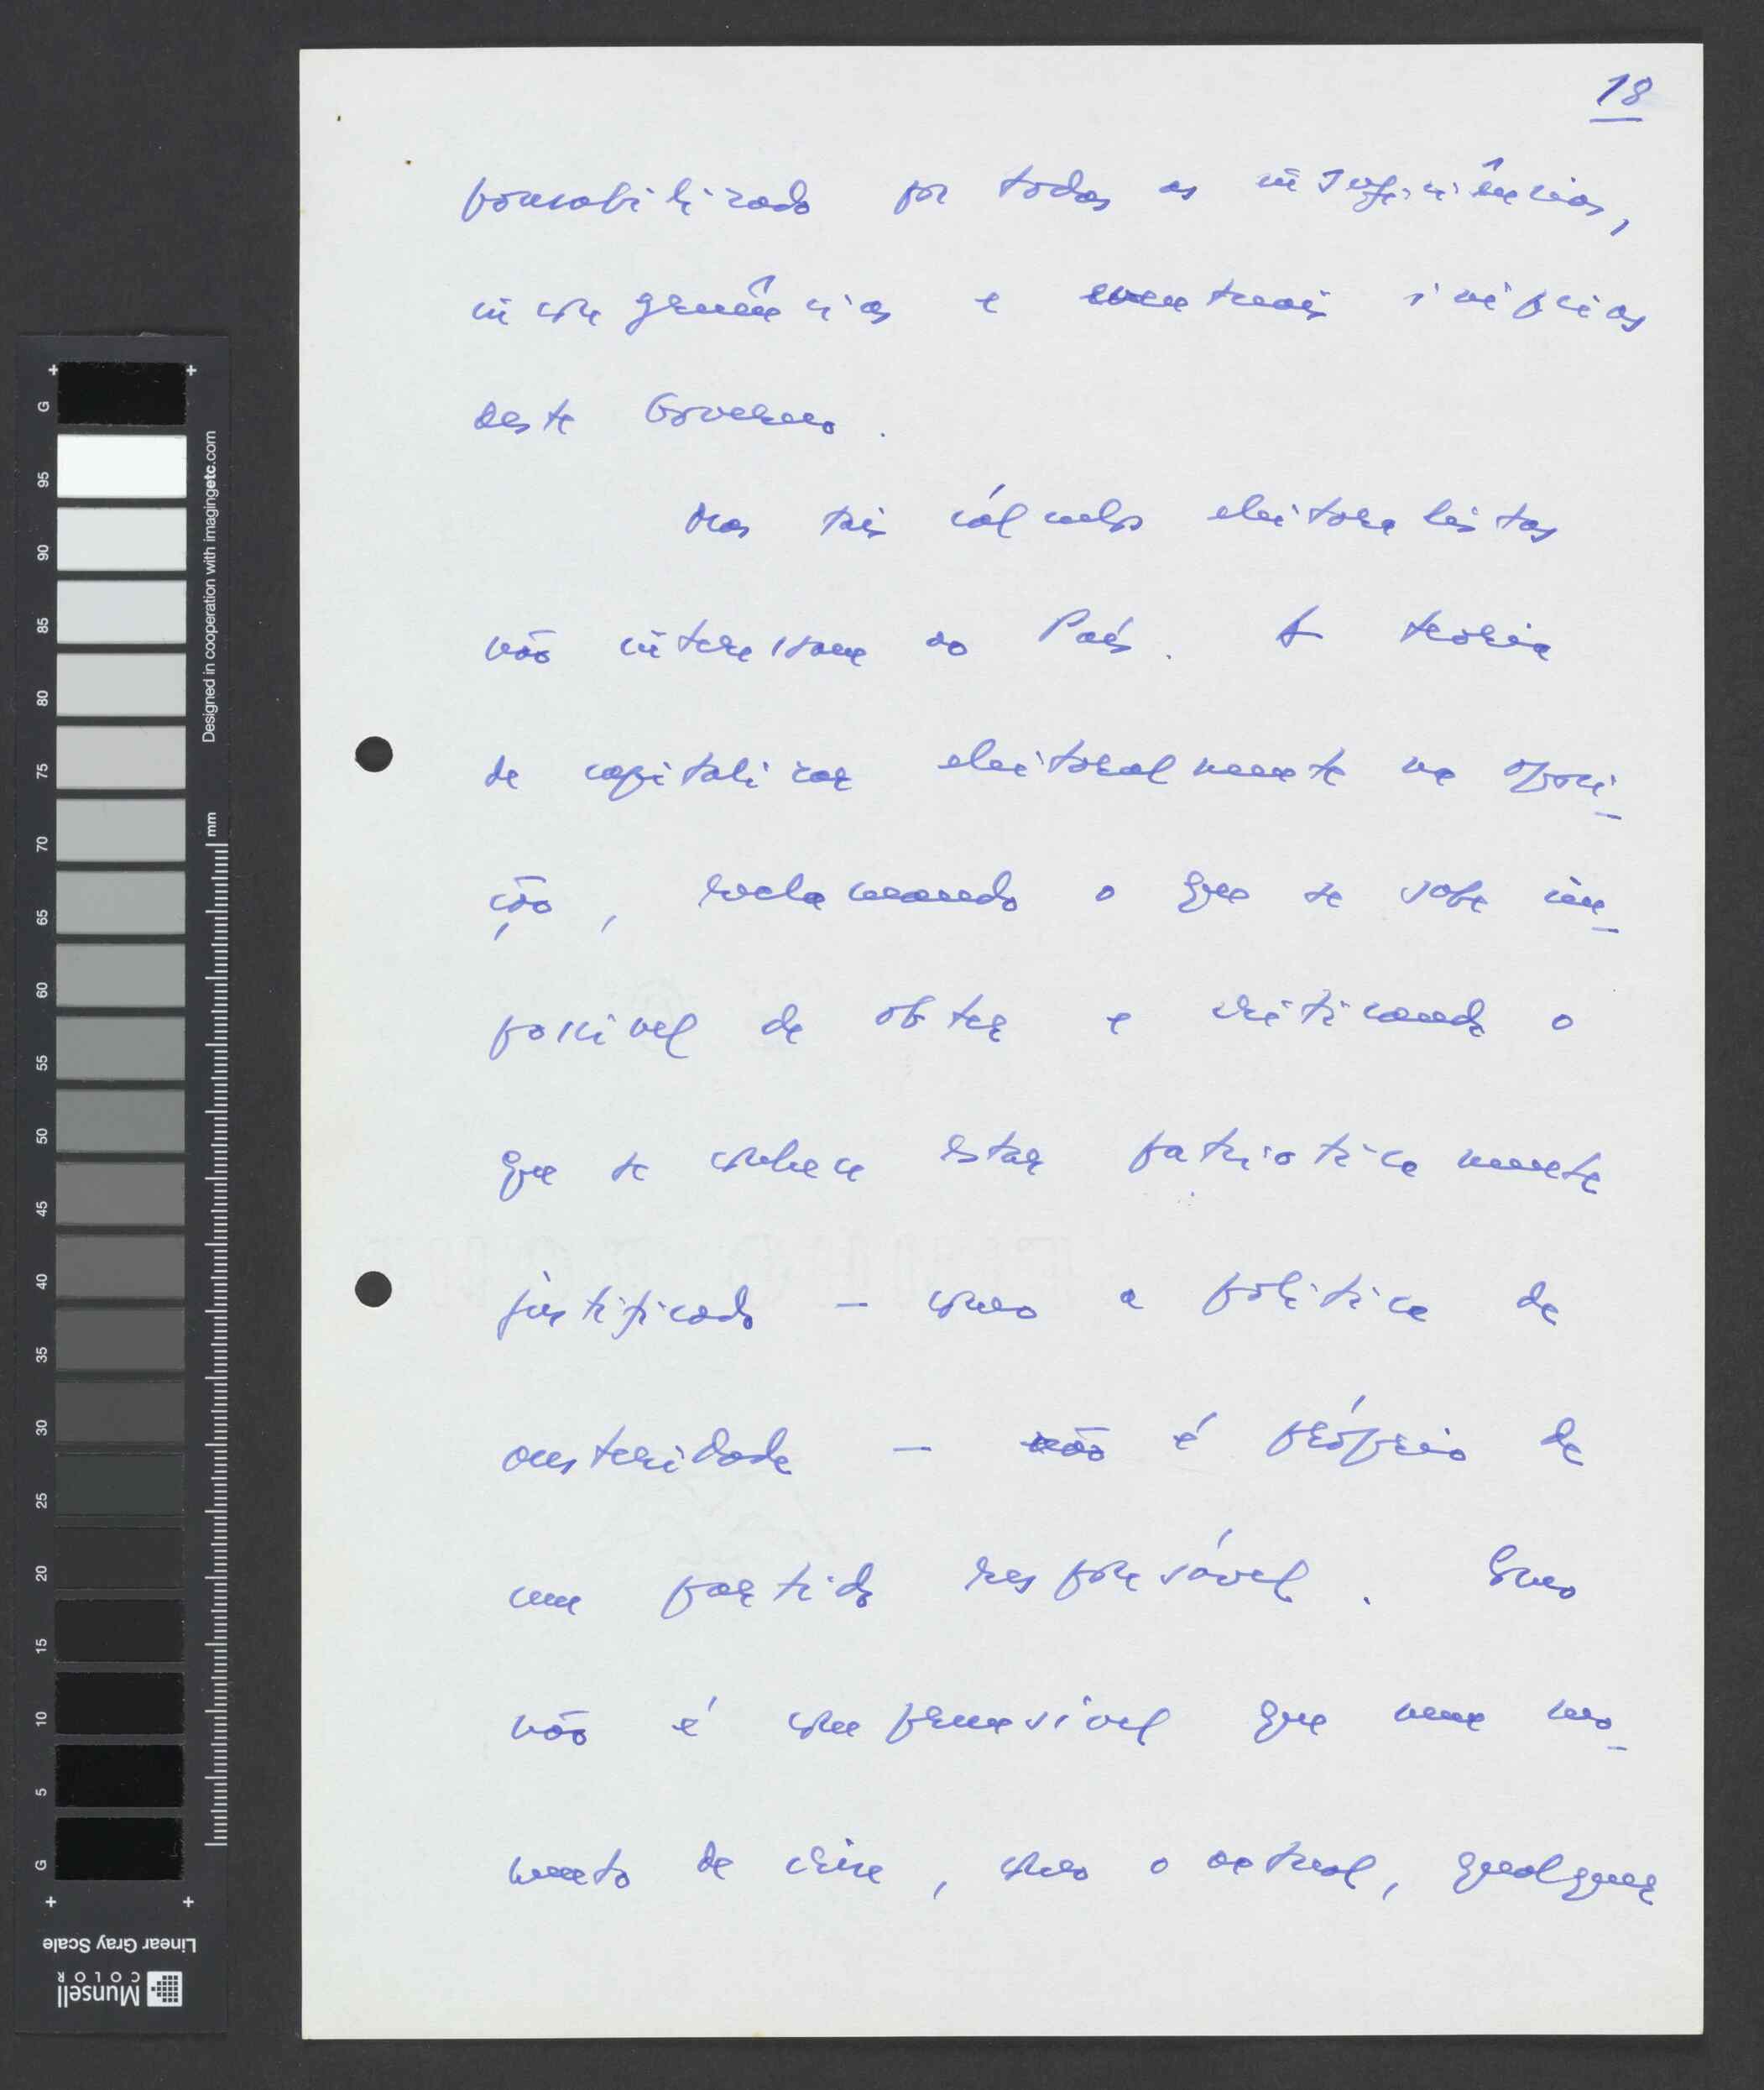 18
ponsabilizado por todas as insuficiências,
incongruências e eventuais inépcias
deste Governo.
Mas tais cálculos eleitoralistas
não interessam ao País. A teoria
de capitalizar eleitoralmente na oposi-
ção, reclamando o que se sabe im-
possível de obter e criticando o
que se conhece estar patrioticamente
justificado – como a política de
austeridade – não é próprio de
um partido responsável. Como
não é compreensível que num mo-
mento de crise, como o actual, qualquer
G 95 90 85 80 75 70 65 60 55 50 45 40 35 30 25 20 15 10 5 G
Designed in cooperation with imagingetc.com
mm
Linear Gray Scale
Munsell
COLOR